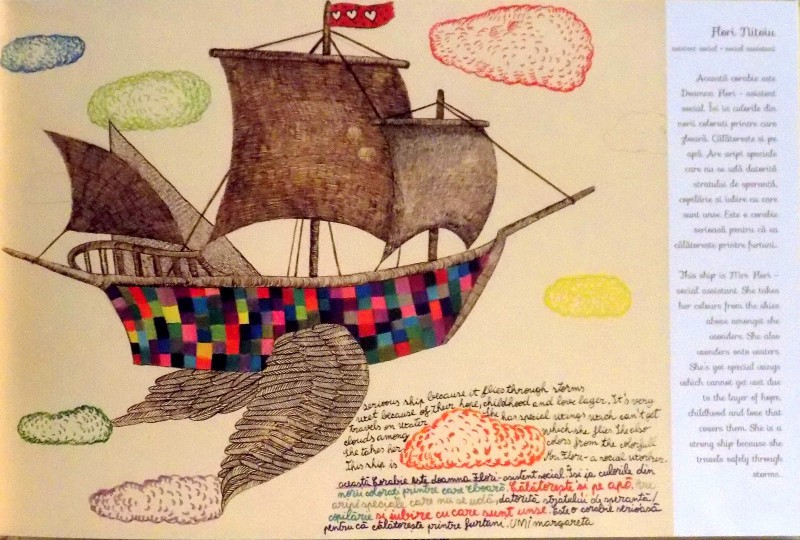 Flori Nitoiu
asistent social • social assistant
Această corabie este
Doamna Flori – asistent
social. Își ia culorile din
norii colorați printre care
zboară. Călătorește și pe
apă. Are aripi speciale
care nu se udă datorită
stratului de speranță,
copilărie și iubire cu care
sunt unse. Este o corabie
serioasă pentru că ea
călătorește printre furtuni.
This ship is Mrs. Flori –
social assistant. She takes
her colours from the skies
above amongst she
wonders. She also
wonders onto waters.
She's got special wings
which cannot get wet due
to the layer of hope,
childhood and love that
covers them. She is a
strong ship because she
travels safely through
storms.
serious ship because it flies through storms
wet because of their hope, childhood and love layer. It's very
travels on water She has special wings wich can't get
clouds among which she flies. She also
She takes her colors from the colorfull
This ship is Mrs. Flori - a social worker.
această corabie este doamna Flori - asistent social. Își ia culorile din
norii colorați printre care zboară Călătorește și pe apă. Are
aripi speciale care nu se udă, datorită stratului de speranță/
copilărie și iubire cu care sunt unse. Este o corabie serioasă
pentru că călătorește printre furtuni. UMI margareta